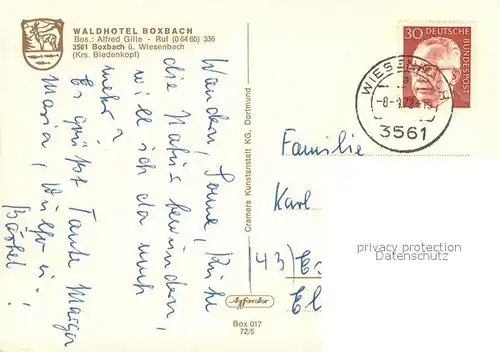 WALDHOTEL BOXBACH
Bes.: Alfred Gille - Ruf (0 64 65) 336
3561 Boxbach ü. Wiesenbach
(Krs. Biedenkopf)
Wandern, Sonne, Ruhe
die Natur bewundern,
will ich da noch
mehr?
Es grüßt Tante
Maria,
Bärbel!
Cramers Kunstanstalt KG, Dortmund
Agfacolor
Box 017
72/5
30 DEUTSCHE
BUNDESPOST
WIESENBACH
3561
Familie
Karl
(43)
privacy protection
Datenschutz